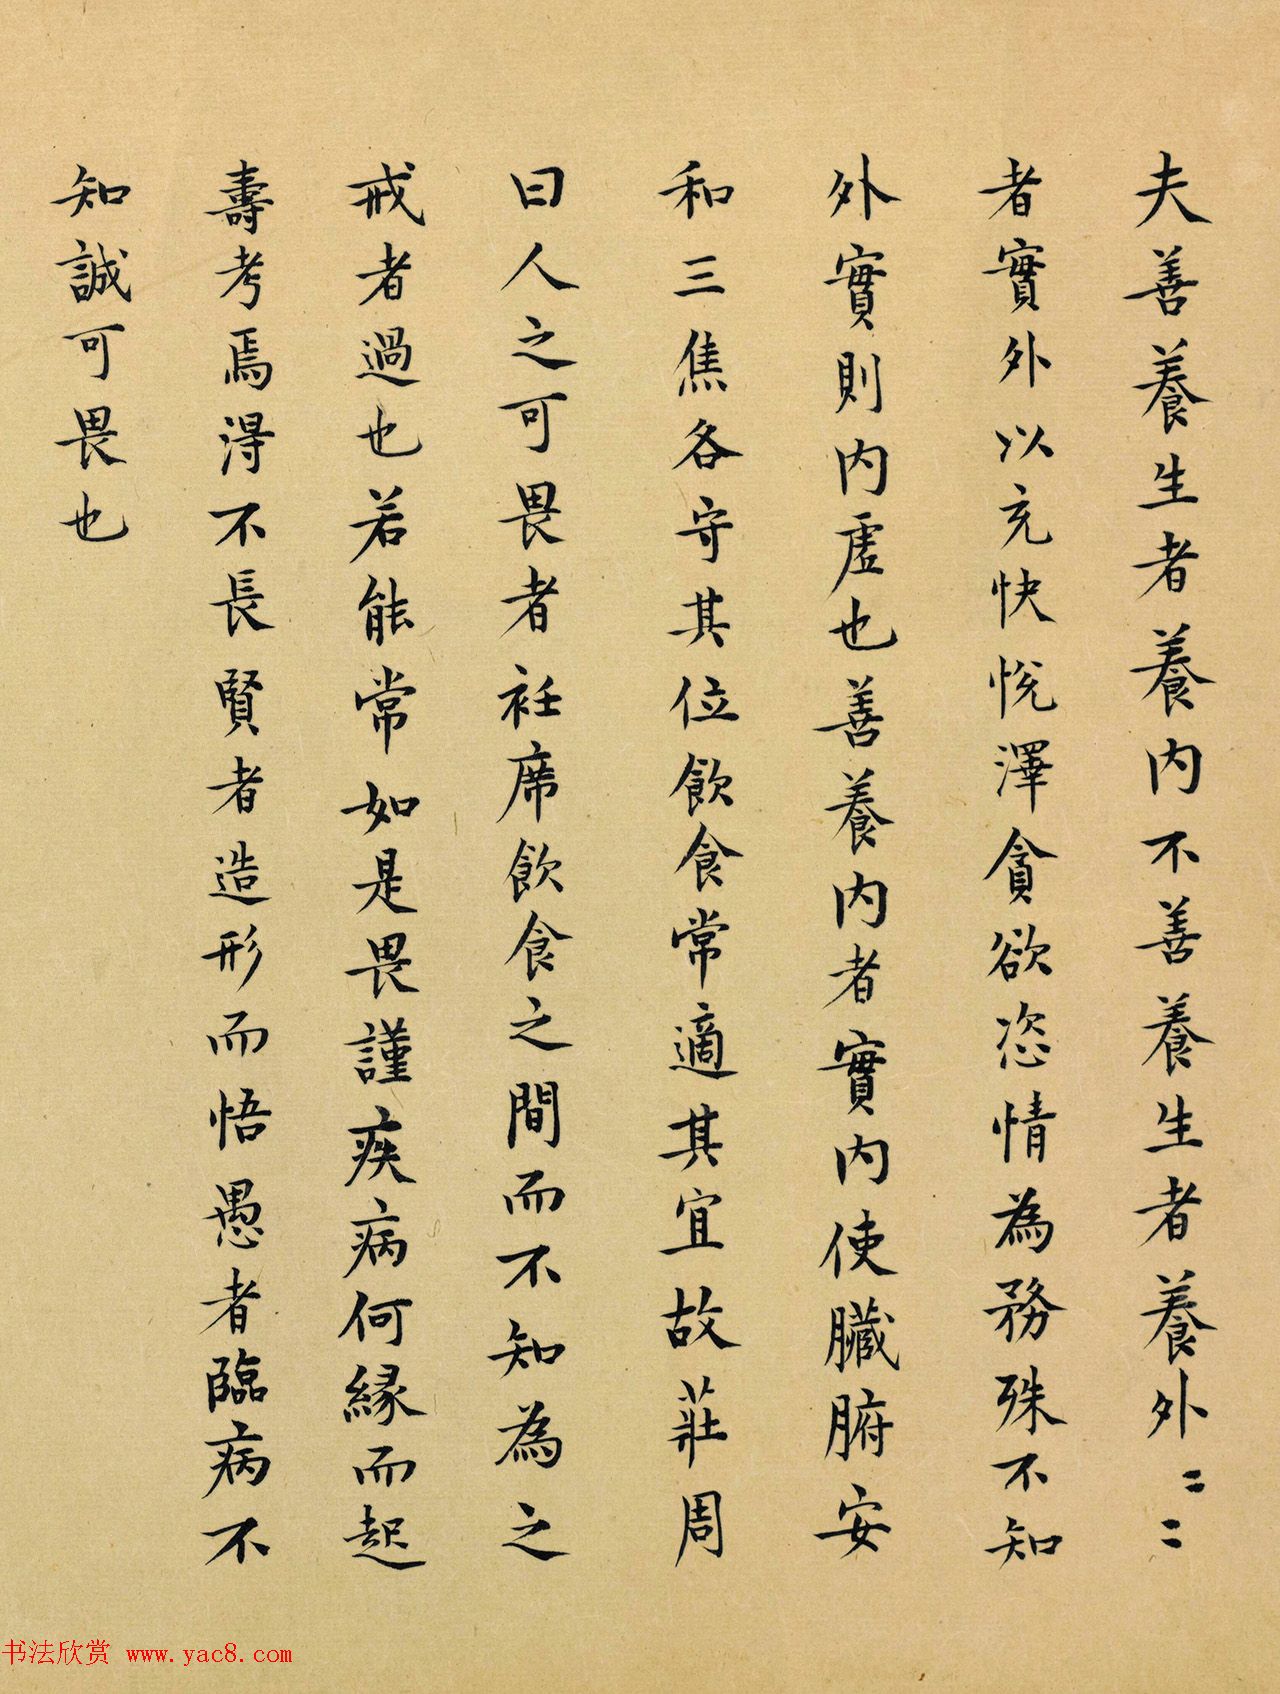 夫善養生者養内不善養生者養外〻〻
者實外以充快悅澤貪欲恣情為務殊不知
外實則内虛也善養内者實内使臟腑安
和三焦各守其位飲食常適其宜故莊周
曰人之可畏者衽席飲食之間而不知為之
戒者過也若能常如是畏謹疾病何縁而起
壽考焉得不長賢者造形而悟愚者臨病不
知誠可畏也
书法欣赏 www.yac8.com